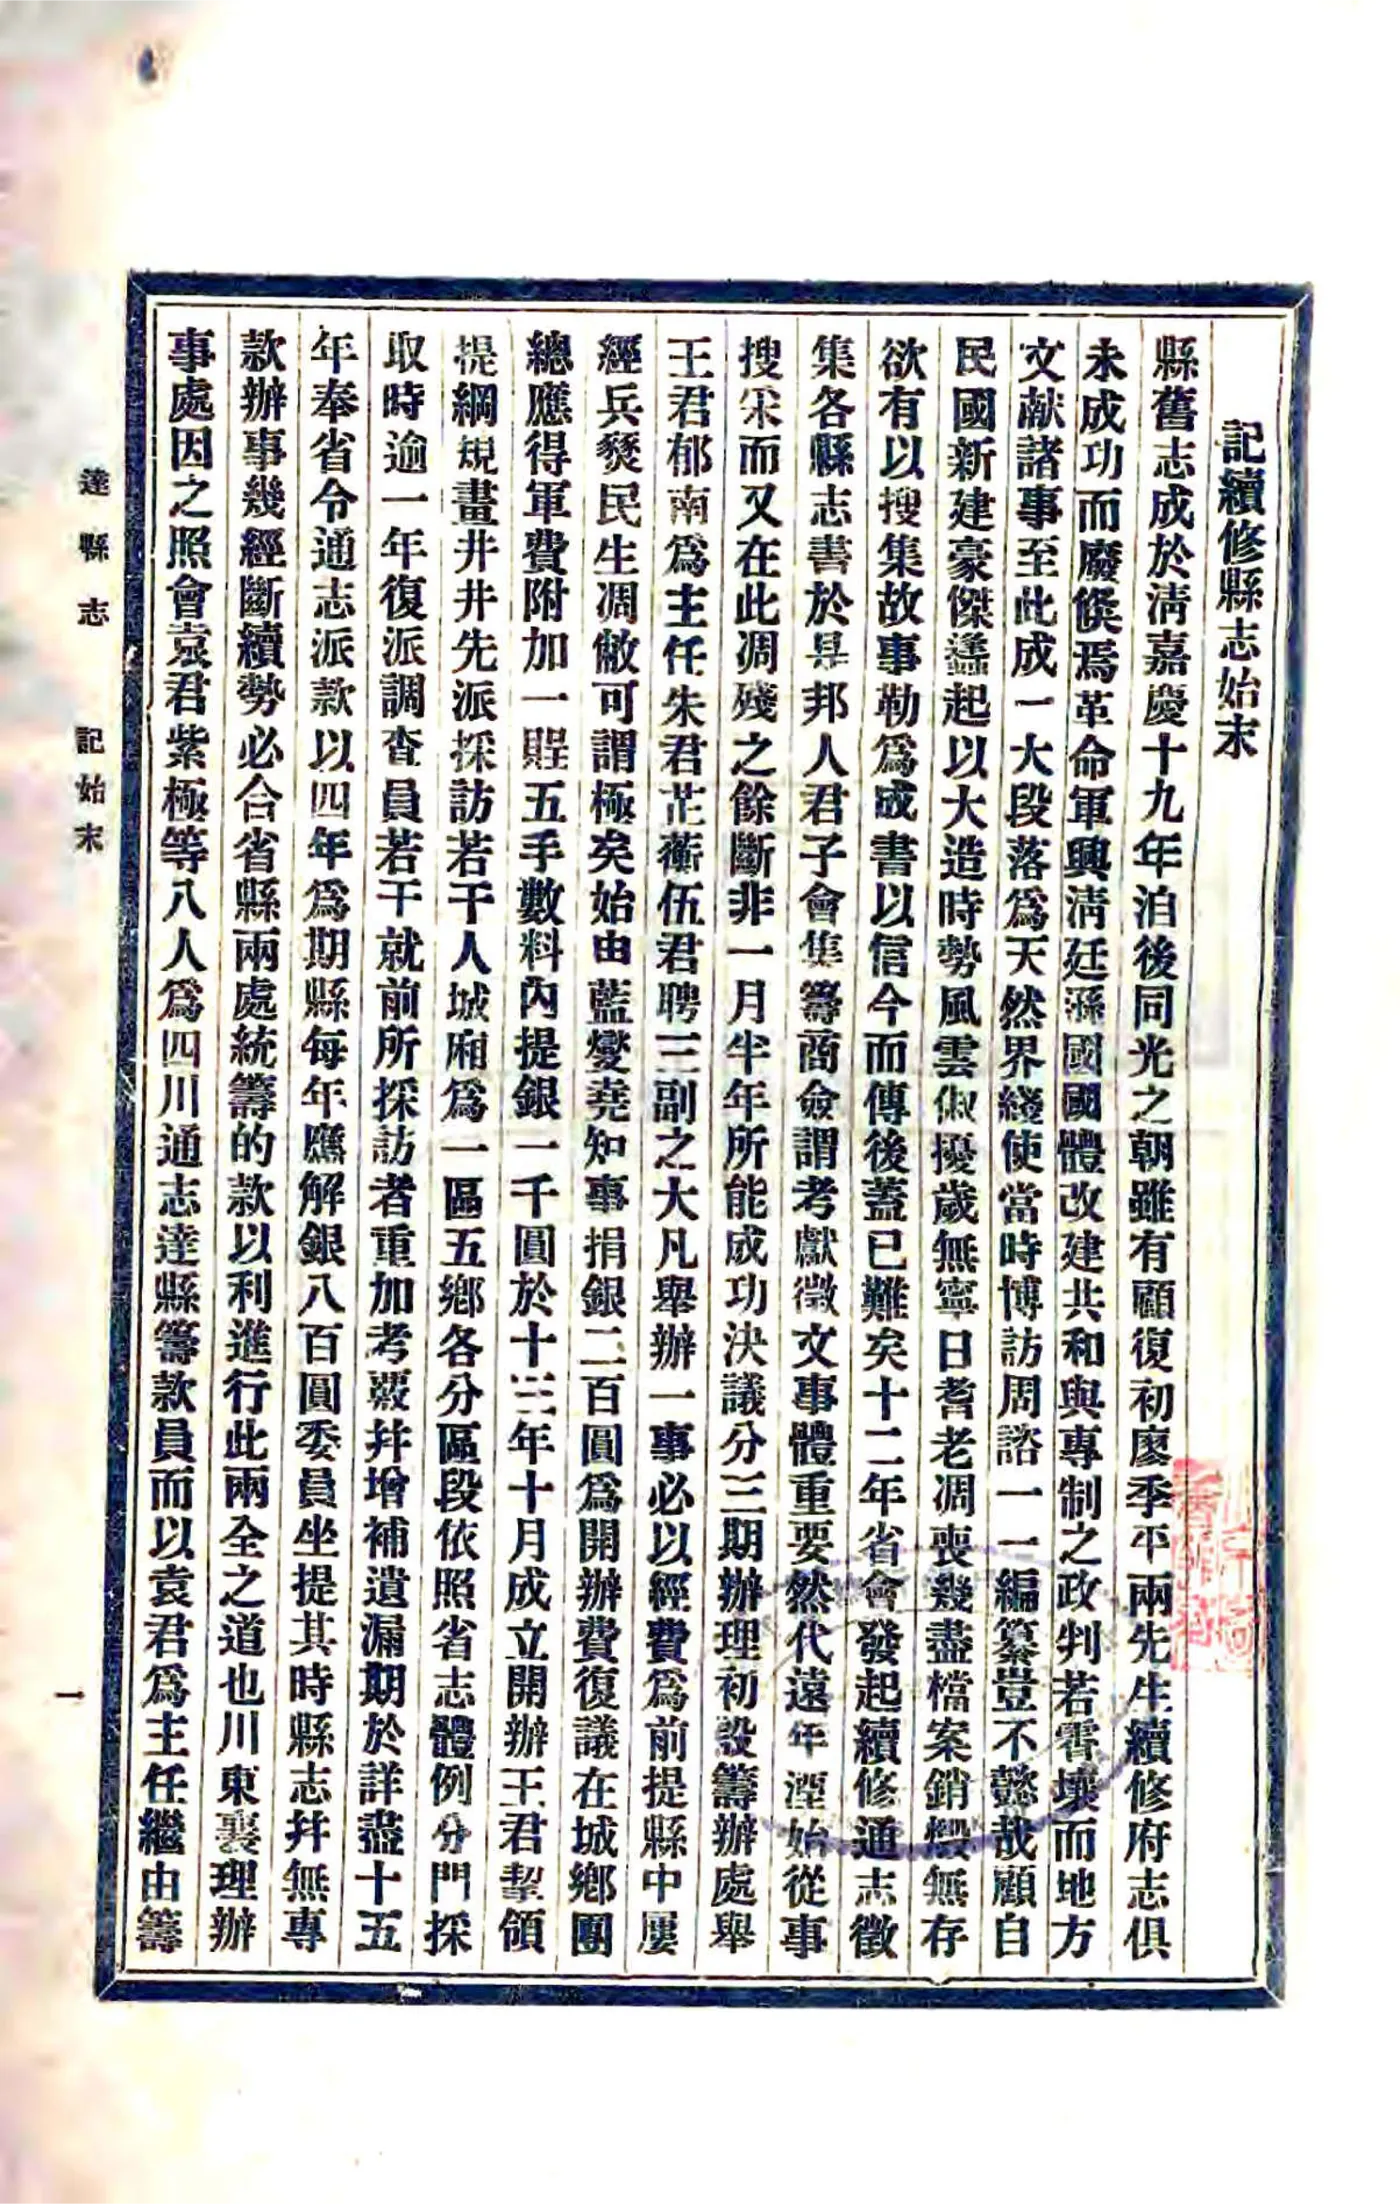 記續修縣志始末
縣舊志成於清嘉慶十九年洎後同光之朝雖有顧復初廖季平兩先生續修府志俱
未成功而廢倏焉革命軍興清廷遜國國體改建共和與專制之政判若霄壤而地方
文献諸事至此成一大段落爲天然界綫使當時博訪周諮一一編纂豈不懿哉顧自
民國新建豪傑蠭起以大造時勢風雲俶擾歲無寧日耆老凋喪幾盡檔案銷燬無存
欲有以搜集故事勒爲成書以信今而傳後蓋已難矣十二年省會發起續修通志徵
集各縣志書於是邦人君子會集籌商僉謂考獻徵文事體重要然代遠年湮始從事
搜采而又在此凋殘之餘斷非一月半年所能成功決議分三期辦理初設籌辦處舉
王君郁南爲主任朱君芷蘅伍君聘三副之大凡舉辦一事必以經費爲前提縣中屢
經兵燹民生凋敝可謂極矣始由藍變堯知事捐銀二百圓爲開辦費復議在城鄉團
總應得軍費附加一踁五手數料內提銀一千圓於十三年十月成立開辦王君挈領
提綱規畫井井先派採訪若干人城廂爲一區五鄉各分區段依照省志體例分門採
取時逾一年復派調查員若干就前所採訪者重加考覈幷增補遺漏期於詳盡十五
年奉省令通志派款以四年爲期縣每年應解銀八百圓委員坐提其時縣志幷無專
款辦事幾經斷續勢必合省縣兩處統籌的款以利進行此兩全之道也川東襄理辦
事處因之照會袁君紫極等八人爲四川通志達縣籌款員而以袁君爲主任繼由籌
達縣志 記始末 一